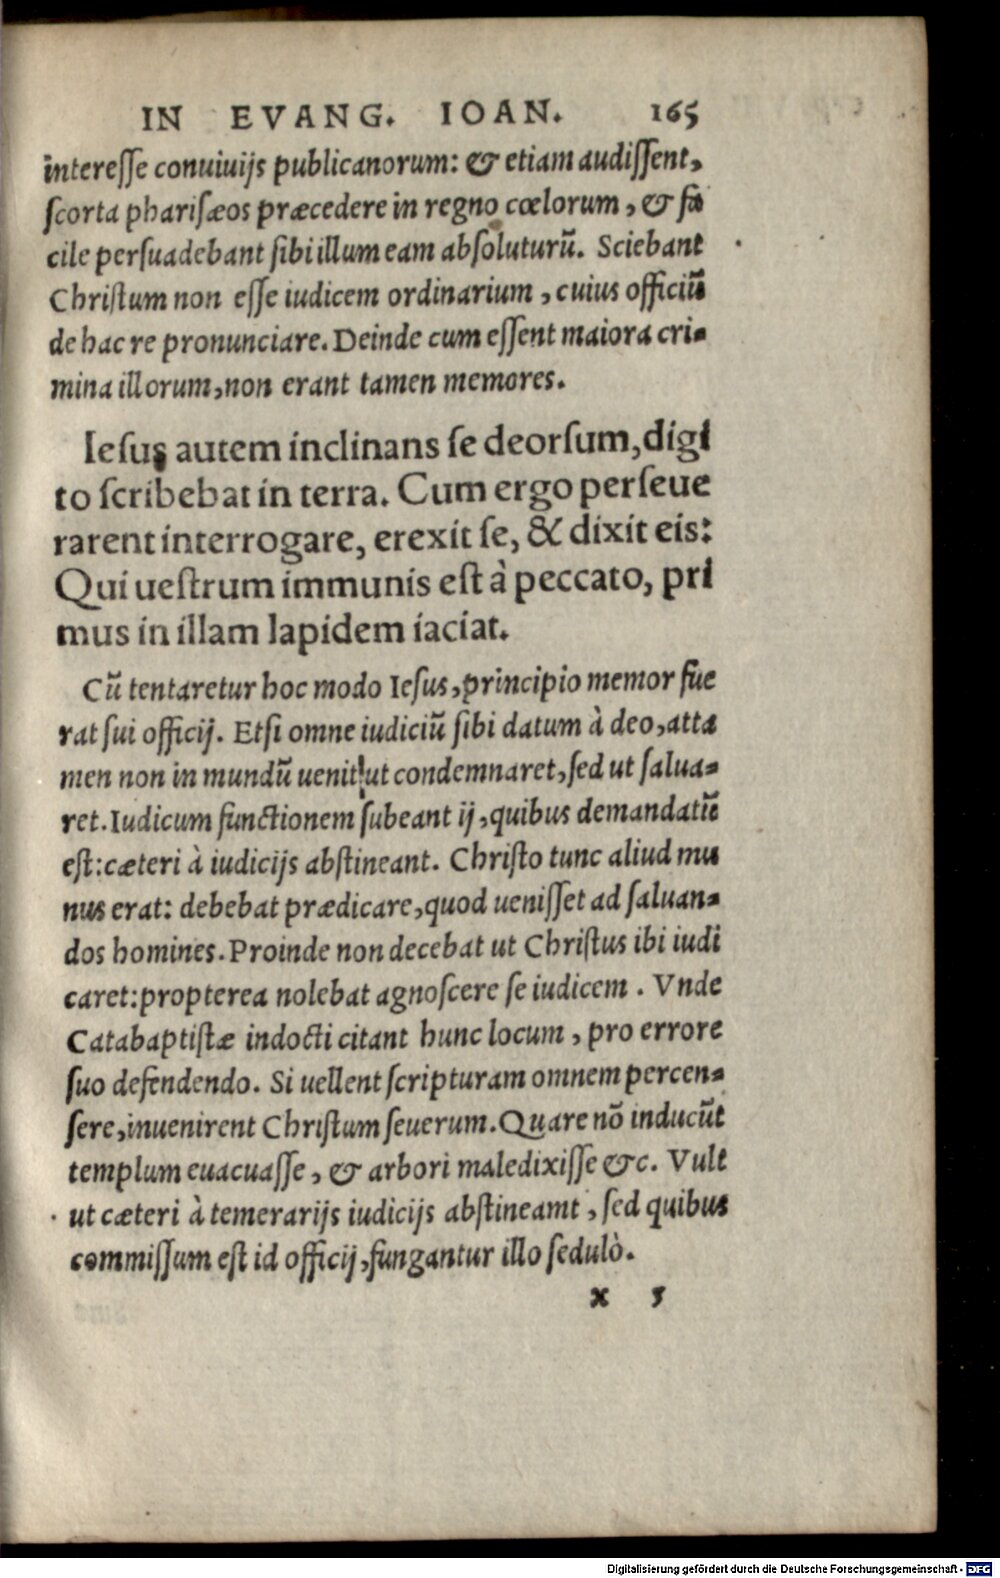 IN EVANG. IOAN. 165
interesse conuiuijs publicanorum: & etiam audissent,
scorta pharisæos præcedere in regno cœlorum, & fa
cile persuadebant sibi illum eam absoluturū. Sciebant
Christum non esse iudicem ordinarium, cuius officiū
de hac re pronunciare. Deinde cum essent maiora cri-
mina illorum, non erant tamen memores.
Iesus autem inclinans se deorsum, digi
to scribebat in terra. Cum ergo perseue
rarent interrogare, erexit se, & dixit eis:
Qui uestrum immunis est à peccato, pri
mus in illam lapidem iaciat.
Cū tentaretur hoc modo Iesus, principio memor fue
rat sui officij. Etsi omne iudiciū sibi datum à deo, atta
men non in mundū uenit ut condemnaret, sed ut salua-
ret. Iudicum functionem subeant ij, quibus demandatū
est: cæteri à iudicijs abstineant. Christo tunc aliud mu
nus erat: debebat prædicare, quod uenisset ad saluan-
dos homines. Proinde non decebat ut Christus ibi iudi
caret: propterea nolebat agnoscere se iudicem. Vnde
Catabaptistæ indocti citant hunc locum, pro errore
suo defendendo. Si uellent scripturam omnem percen-
sere, inuenirent Christum seuerum. Quare nō inducūt
templum euacuasse, & arbori maledixisse &c. Vult
ut cæteri à temerarijs iudicijs abstineamt, sed quibus
commissum est id officij, fungantur illo sedulò.
x 5
Digitalisierung gefördert durch die Deutsche Forschungsgemeinschaft - DFG